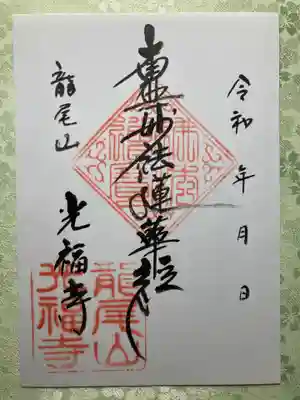 令和　年　月　日
南無妙法蓮華経
龍尾山
光福寺
龍尾山
光福寺